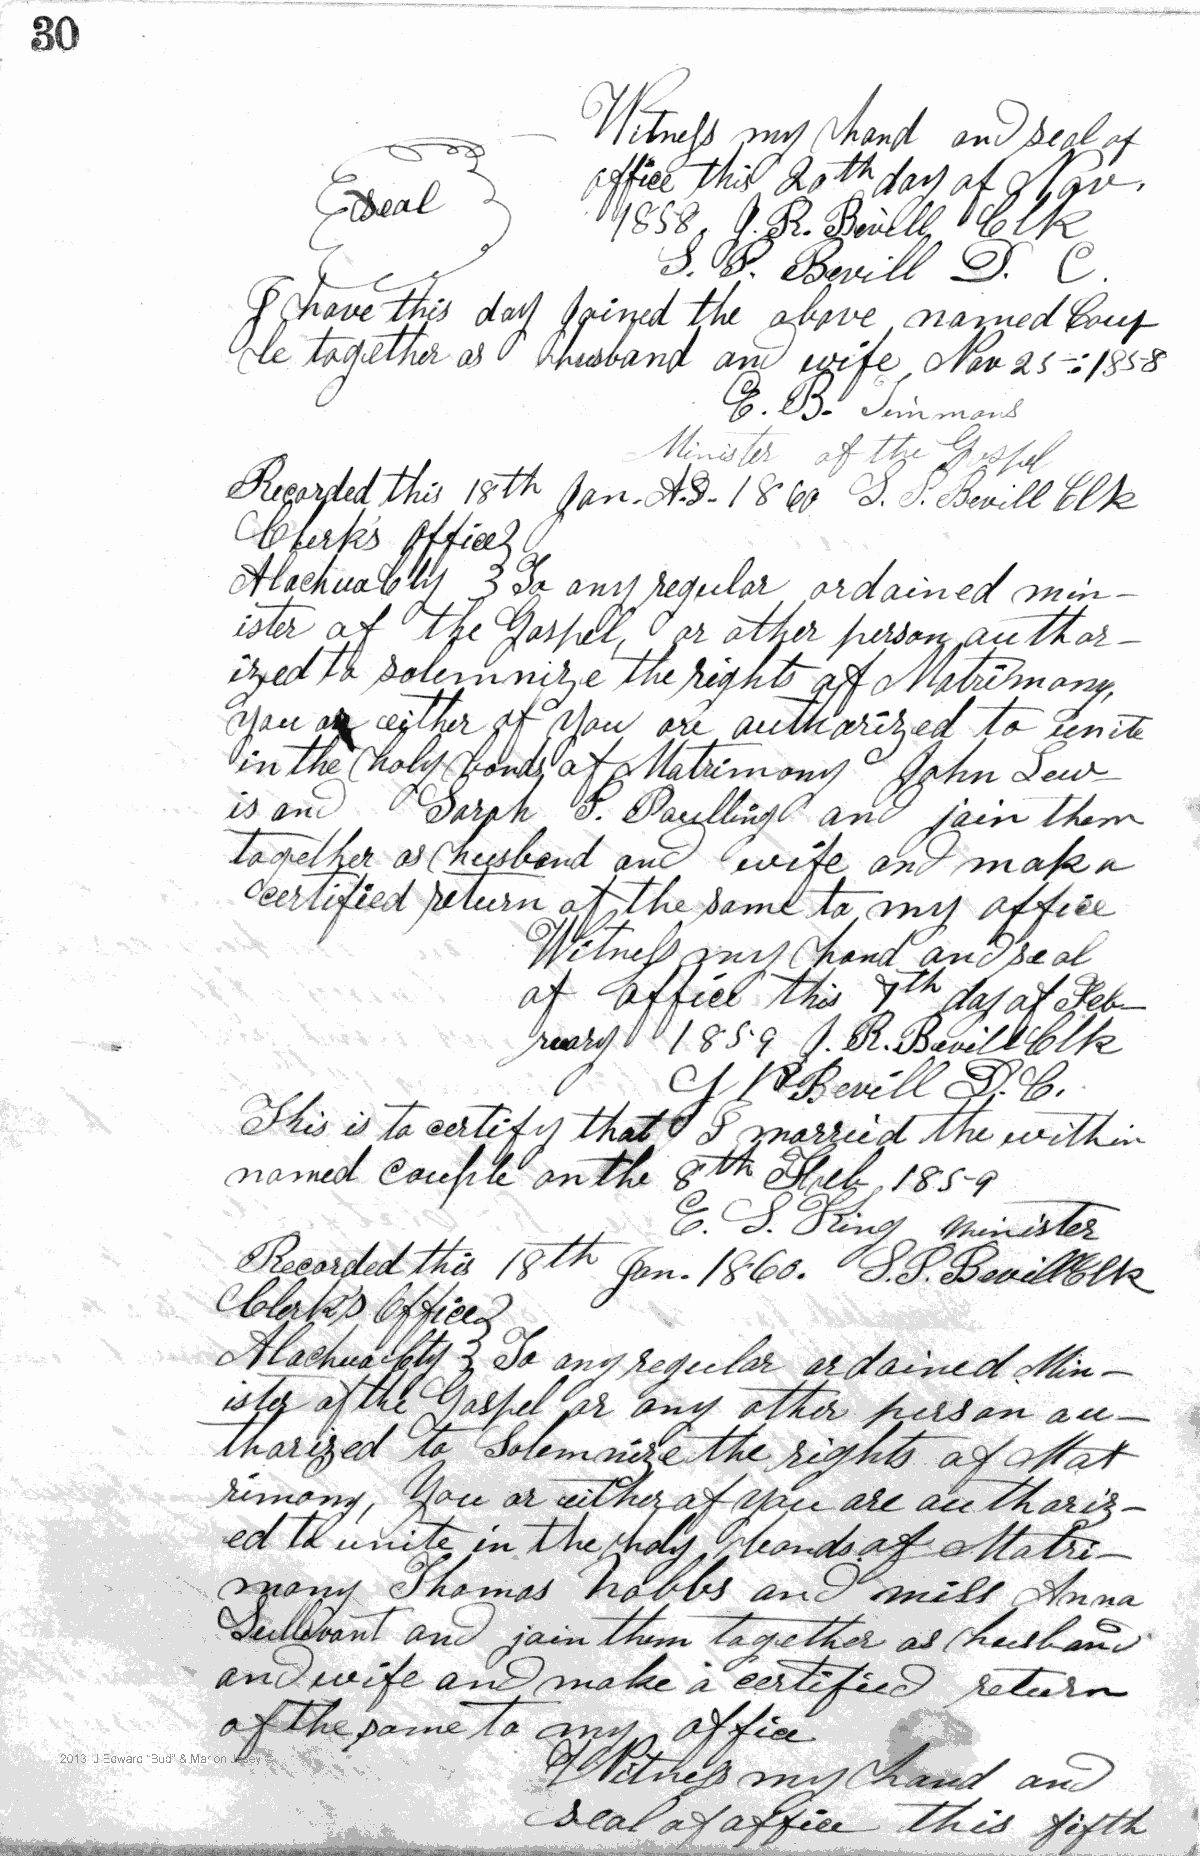 30
Witness my hand and seal of
office this 20th day of Nov.
Seal
1858, J. R. Bevill Clk
S. P. Bevill D. C.
I have this day joined the above named Coup
le together as husband and wife, Nov 25-:1858
E. B. Timmons
Minister of the Gospel
Recorded this 18th Jan. A.D. 1860 S. P. Bevill Clk
Clerk's Office}
Alachua Cty } To any regular ordained min-
ister of the Gospel, or other person author-
ized to solemnize the rights of Matrimony,
you or either of you are authorized to unite
in the holy bonds of Matrimony John Lew
is and Sarah S. Paulling and join them
together as husband and wife and make a
certified return of the same to my office
Witness my hand and seal
of office this 7th day of Feb-
ruary 1859 J. R. Bevill Clk
Bevill D. C.
This is to certify that I married the within
named couple on the 8th Feb, 1859
E. S. King Minister
Recorded this 18th Jan. 1860. S. P. Bevill Clk
Clerk's Office}
Alachua Cty } To any regular ordained Min-
ister of the Gospel or any other person au-
thorized to Solemnize the rights of Mat
rimony, You or either of you are authoriz-
ed to unite in the holy bonds of Matri-
mony Thomas hobbs and miss Anna
Sullivant and join them together as husband
and wife and make a certified return
of the same to my office
2013 J Edward "Bud" & Marion
Witness my hand and
seal of office this fifth